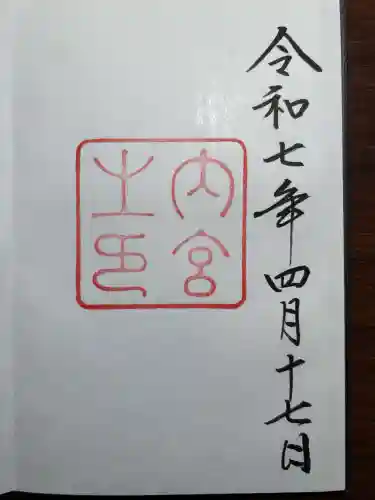 令和七年四月十七日
内宮
之印